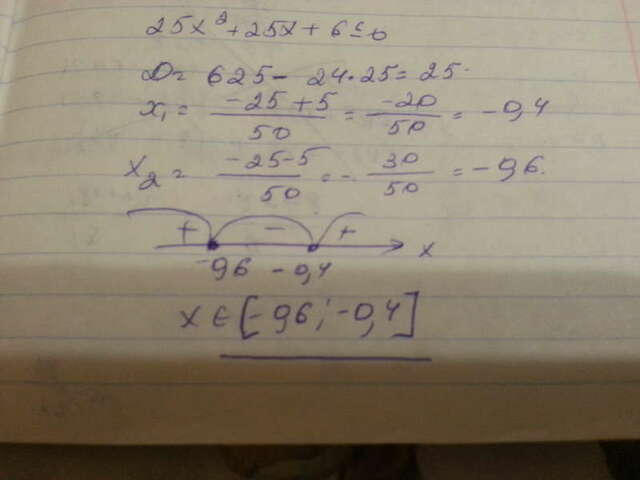 25x² + 25x + 6 ≤ 0
D = 625 - 24·25 = 25.
x₁ = (-25 + 5)/50 = -20/50 = -0,4
x₂ = (-25 - 5)/50 = -30/50 = -0,6.
+ - + x
-0,6 -0,4
x ∈ [-0,6; -0,4]